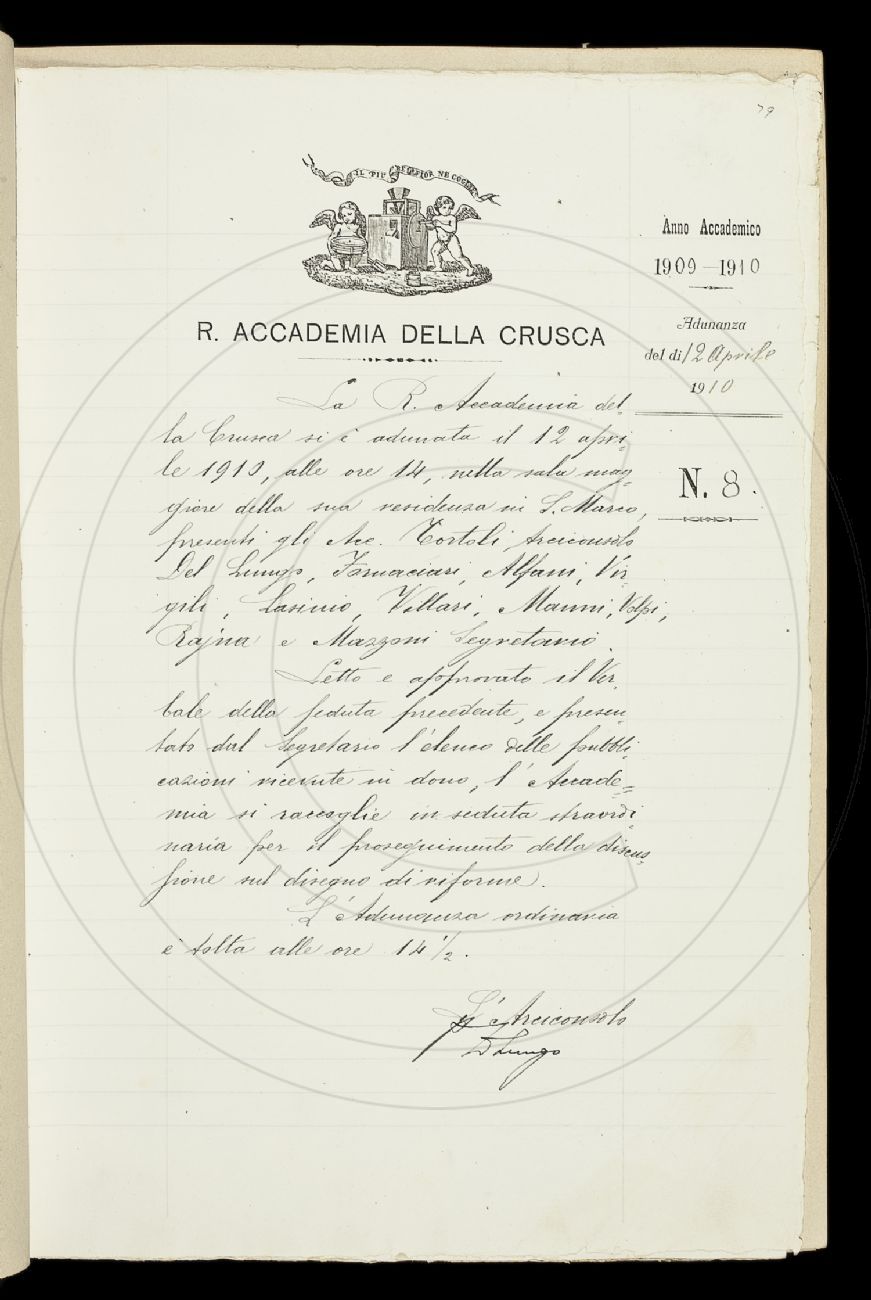 79
IL PIÙ BEL FIOR NE COGLIE
R. ACCADEMIA DELLA CRUSCA
Anno Accademico
1909-1910
Adunanza
del dì 12 Aprile
1910
N. 8.
La R. Accademia del-
la Crusca si è adunata il 12 apri-
le 1910, alle ore 14, nella sala mag-
giore della sua residenza in S. Marco,
presenti gli Acc. Tortoli Arciconsolo
Del Lungo, Fornaciari, Alfani, Vir-
gili, Lasinio, Villari, Manni, Volpi,
Rajna e Mazzoni Segretario.
Letto e approvato il Ver-
bale della seduta precedente, e presen-
tato dal Segretario l'elenco delle pubbli-
cazioni ricevute in dono, l'Accade-
mia si raccoglie in seduta straordi-
naria per il proseguimento della discus-
sione sul disegno di riforme.
L'Adunanza ordinaria
è tolta alle ore 14 1/2.
L'Arciconsolo
D Lungo